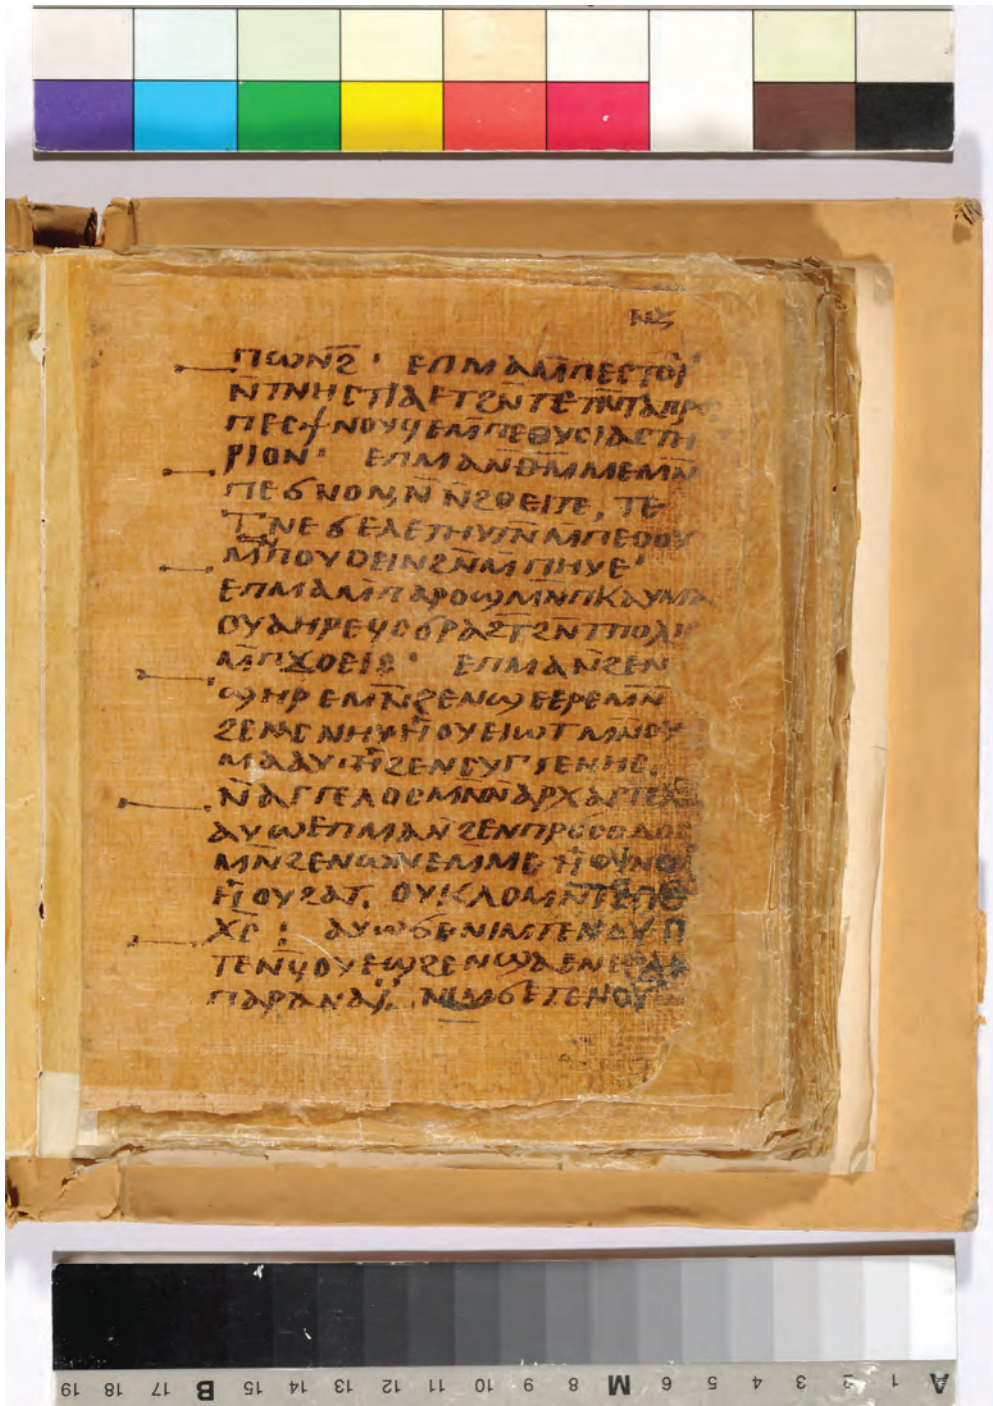 ⲛⲍ
ⲡⲱⲛϩ̅· ⲉⲡⲙⲁⲙ̅ⲡⲉⲥⲧⲟⲓ̈
ⲛ̅ⲧⲛⲏⲥⲧⲓⲁⲉⲧϩⲛ̅ⲧⲉ
ⲡⲉⲥϯⲛⲟⲩϥⲉⲙ̅ⲡⲉⲑⲩⲥⲓⲁⲥⲧⲏ
ⲣⲓⲟⲛ· ⲉⲡⲙⲁⲛ̅ⲑⲙ̅ⲙⲉⲙⲛ̅
ⲡⲉϭⲛⲟⲛ,ⲛ̅ⲛ̅ϩⲟⲉⲓⲧⲉ, ⲧⲉ
ⲧ̅ⲛⲉϭⲉⲗⲉⲧⲏⲩⲧⲛ̅ⲙ̅ⲡⲉⲟⲟⲩ
ⲙⲛ̅ⲡⲟⲩⲟⲉⲓⲛϩⲛ̅ⲙ̅ⲡⲏⲩⲉ'
ⲉⲡⲙⲁⲙ̅ⲡⲁⲣⲟϣⲙⲛ̅ⲡⲕⲁⲩⲙⲁ
ⲟⲩⲁⲏⲣⲉϥⲥϭⲣⲁϩⲧ̅ϩⲛ̅ⲧⲡⲟⲗⲓⲥ
ⲙ̅ⲡϫⲟⲉⲓⲥ· ⲉⲡⲙⲁⲛ̅ϩⲉⲛ
ϣⲏⲣⲉⲙⲛ̅ϩⲉⲛϣⲉⲉⲣⲉⲙⲛ̅
ϩⲉⲛⲥⲛⲏⲩⲙⲛ̅ⲟⲩⲉⲓⲱⲧⲙⲛ̅ⲟⲩ
ⲙⲁⲁⲩⲙⲛ̅ϩⲉⲛⲥⲩⲅⲅⲉⲛⲏⲥ,
ⲛ̅ⲁⲅⲅⲉⲗⲟⲥⲙⲛ̅ⲛ̅ⲁⲣⲭⲁⲅⲅⲉⲗ
ⲁⲩⲱⲉⲡⲙⲁⲛ̅ϩⲉⲛⲡⲣⲟⲥⲟⲇⲟⲥ
ⲙⲛ̅ϩⲉⲛⲱⲛⲉⲙ̅ⲙⲉⲙⲛ̅ⲟⲩⲛⲟⲩ
ⲙⲛ̅ⲟⲩϩⲁⲧ, ⲟⲩⲕⲗⲟⲙⲛ̅ⲧⲉⲡⲉ
ⲭ̅ⲥ̅: ⲁⲩⲱϭⲉⲛⲓⲙⲡⲉⲛⲁⲩⲡ
ⲧⲉⲛϥⲟⲩⲉϣϩⲉⲛϣⲁϫⲉ
ⲡⲁⲣⲁⲛⲁⲓ̈, ⲛⲓⲙϭⲉⲡⲉⲛⲟⲩ